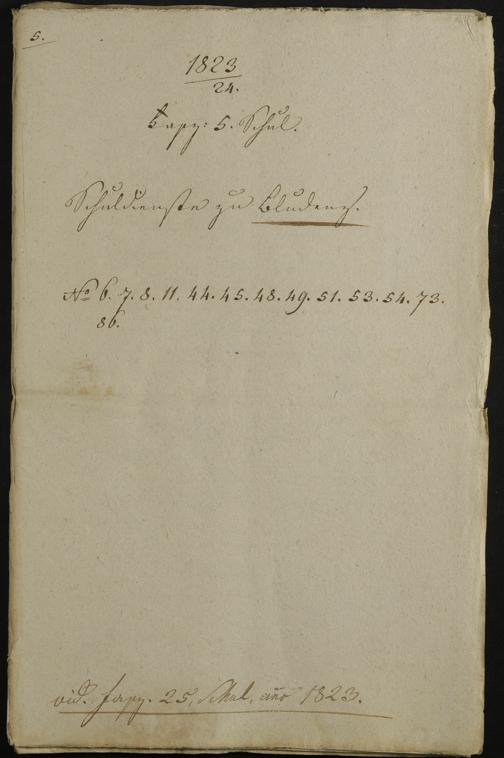 5.
1823
24.
Fasz: 5. Schul.
Schuldienste zu Bludenz.
No 6. 7. 8. 11. 44. 45. 48. 49. 51. 53. 54. 73.
86.
vid. fasz. 25, Schul, año 1823.